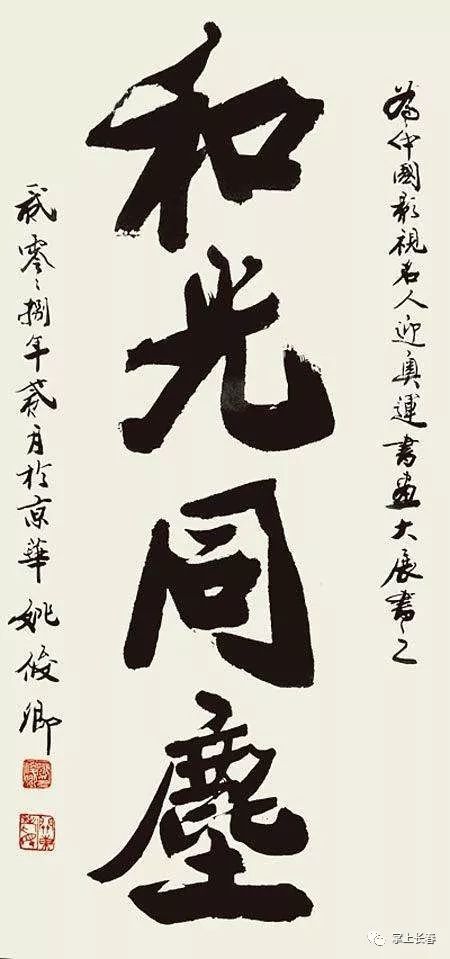 為中國影視名人迎奧運書畫大展書之
和光同塵
貳零〻捌年貳月於京華 姚俊卿
掌上长春